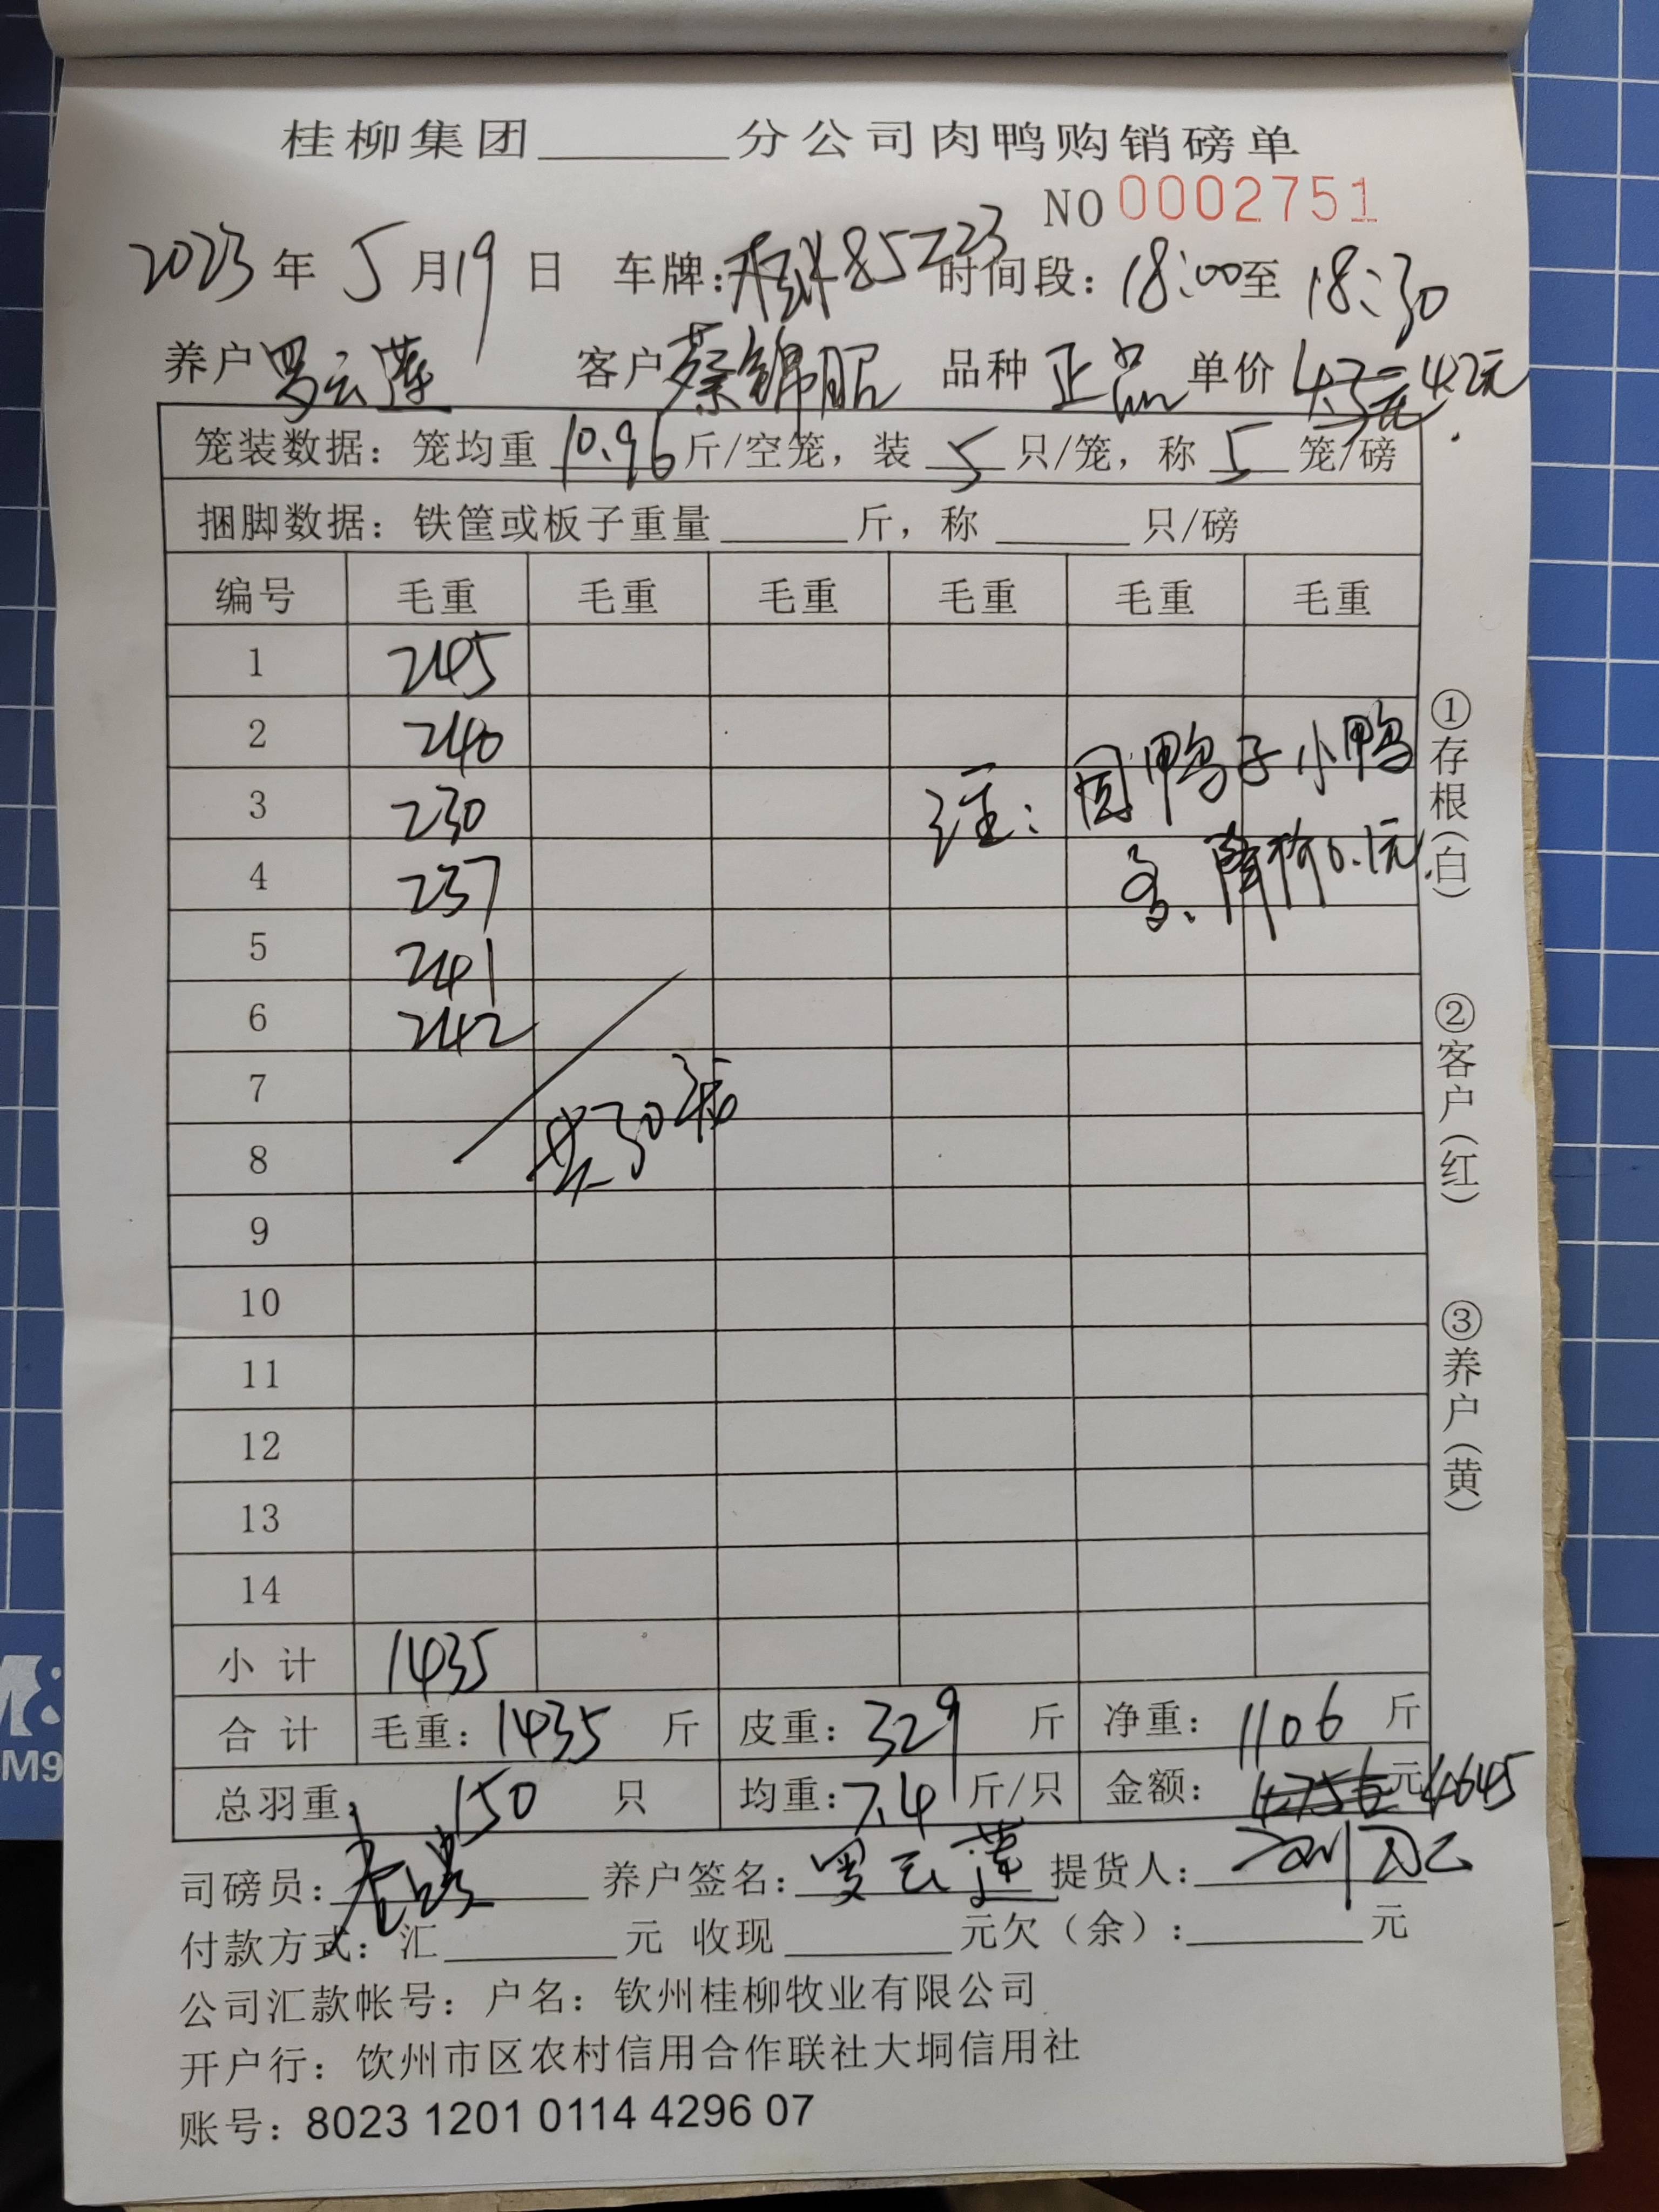 桂柳集团______分公司肉鸭购销磅单
NO 0002751
2023年5月19日 车牌: 85Z23 时间段: 18:00至18:30
养户 罗云莲 客户 蔡锦昭 品种 正品 单价 4.3元 4.2元
笼装数据: 笼均重 10.96 斤/空笼, 装 5 只/笼, 称 5 笼/磅
捆脚数据: 铁筐或板子重量______斤, 称______只/磅
编号 毛重 毛重 毛重 毛重 毛重 毛重
1 245
2 240
3 230
4 237
5 241
6 242
注: 因鸭子小鸭
多、降价0.1元.
7
8
共30笼
9
10
11
12
13
14
小计 1435
合计 毛重: 1435 斤 皮重: 329 斤 净重: 1106 斤
总羽重: 150 只 均重: 7.4 斤/只 金额: 4756 元 4645
司磅员: 养户签名: 罗云莲 提货人:
付款方式: 汇______元 收现______元欠(余):______元
公司汇款帐号: 户名: 钦州桂柳牧业有限公司
开户行: 钦州市区农村信用合作联社大垌信用社
账号: 8023 1201 0114 4296 07
①存根(白)
②客户(红)
③养户(黄)
M9